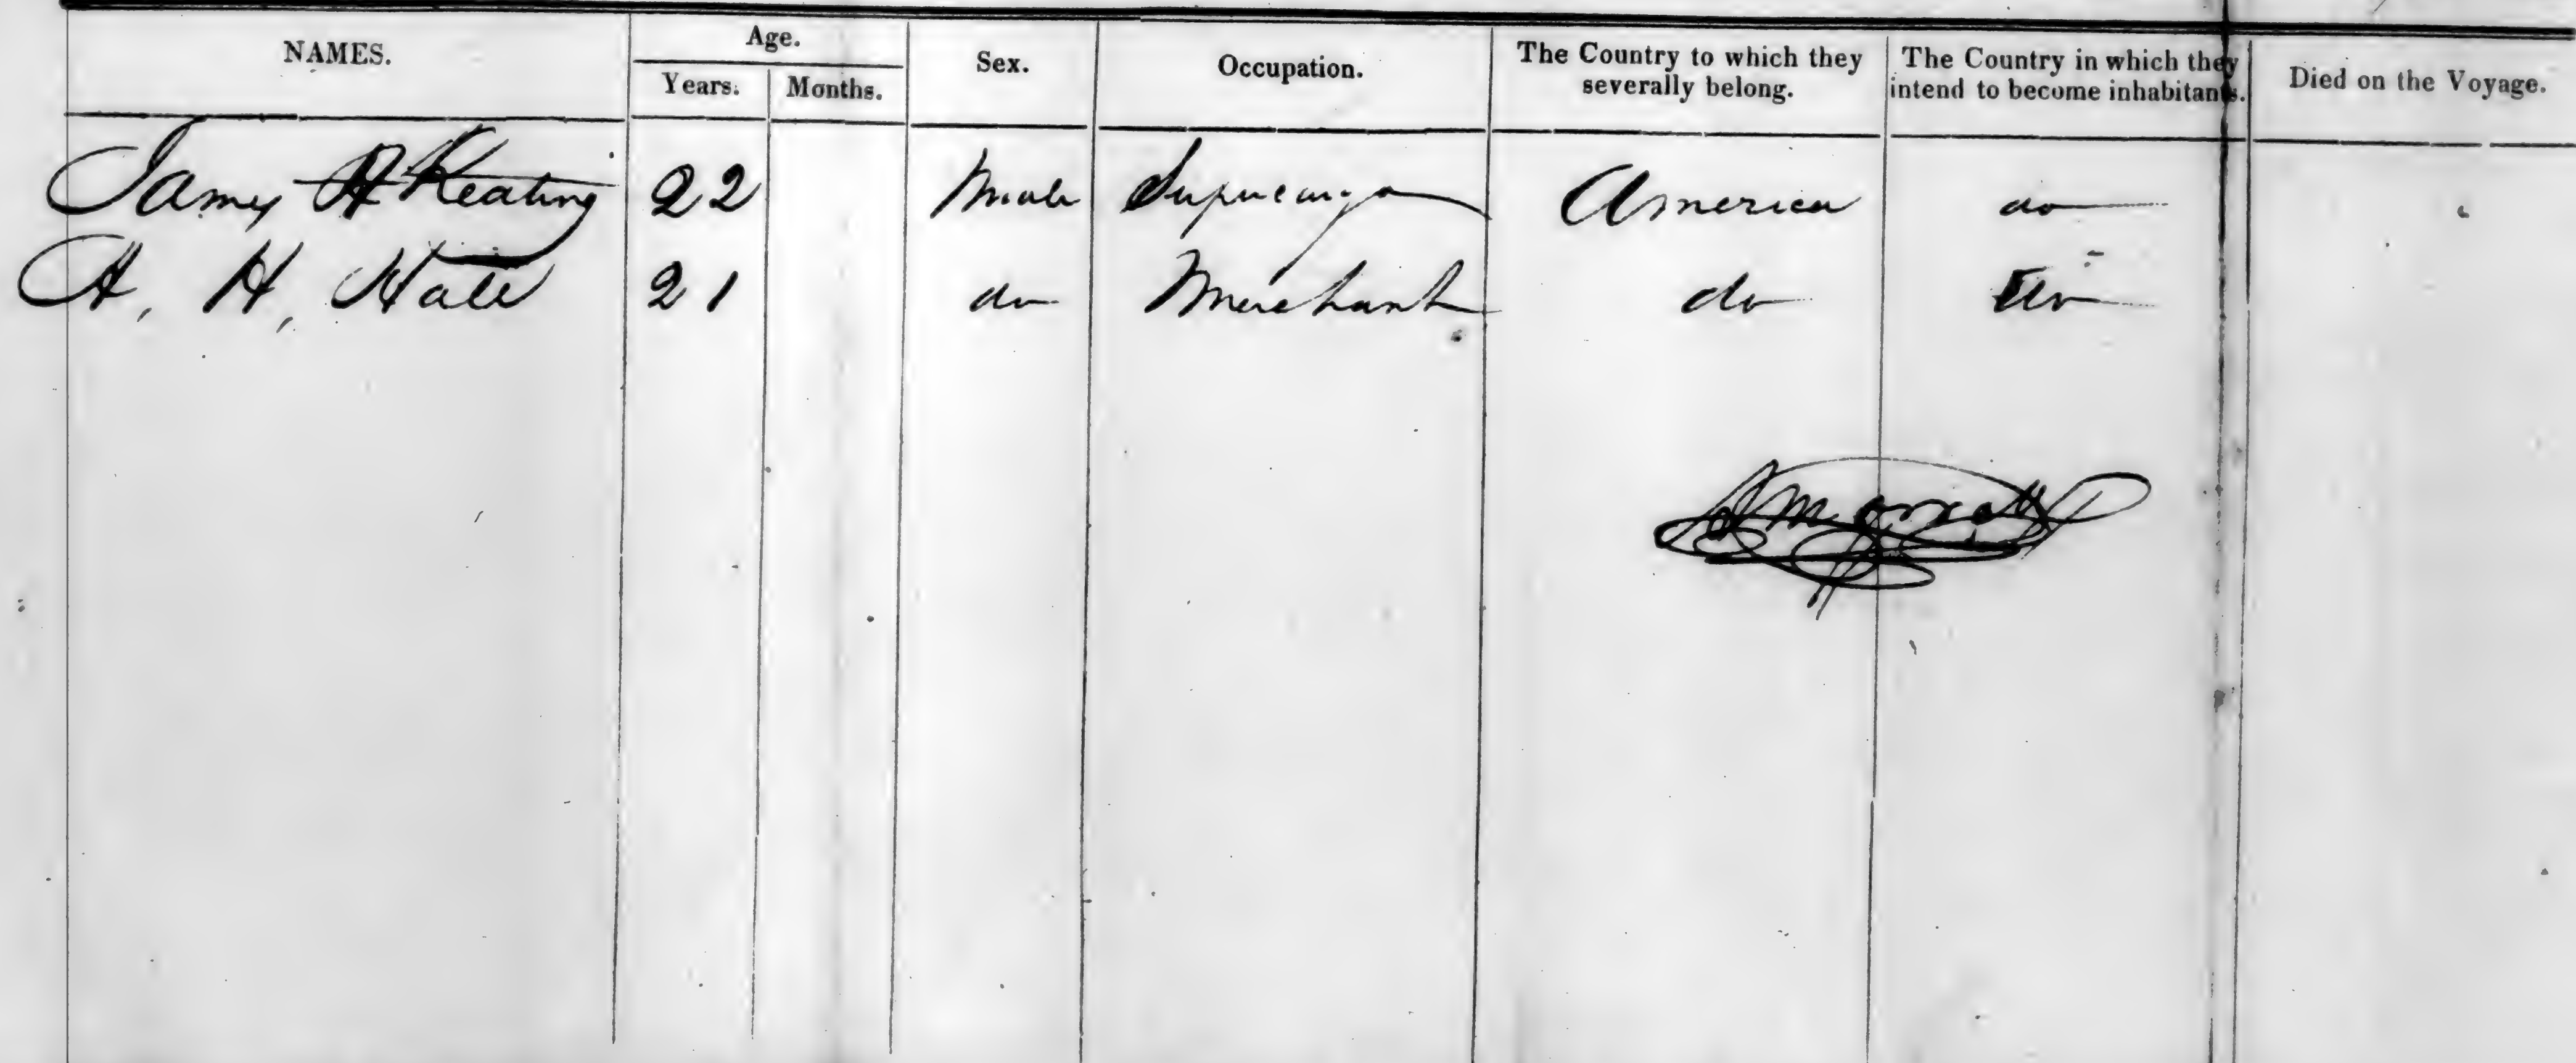 NAMES. Age. Sex. Occupation. The Country to which they severally belong. The Country in which they intend to become inhabitants. Died on the Voyage.
Years. Months.
James H Keating 22 Male Supercargo America do
A. H. Hale 21 do Merchant do do